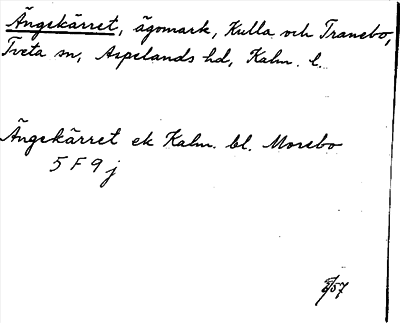 Ängskärret, ägomark, Kulla och Tranebo,
Tveta sn, Aspelands hd, Kalm. l.
Ängskärret ek Kalm. bl. Morsbo
5 F 9 j